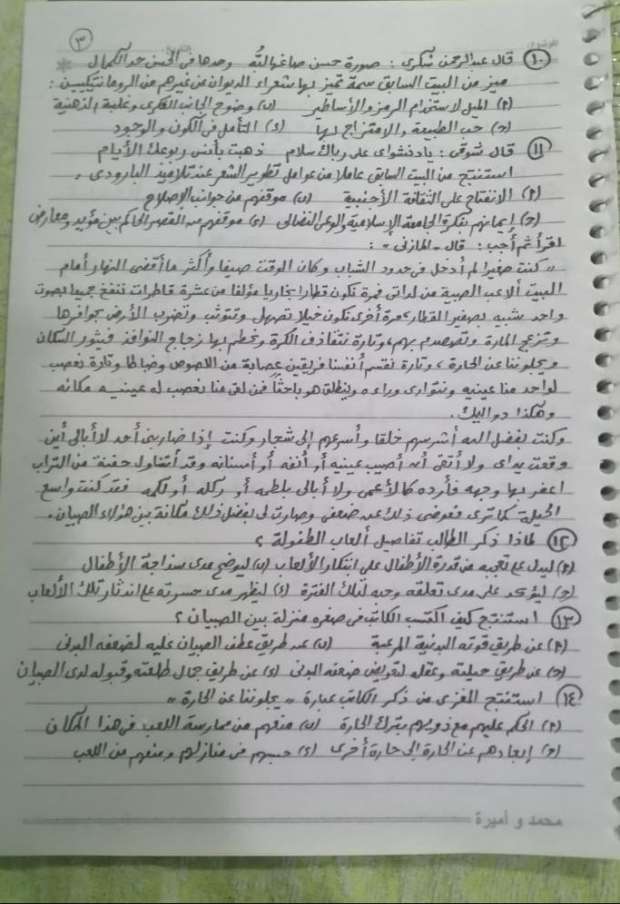 ٣
١٠ قال عبد الرحمن شكرى : صورة حسن صاغها لله وحدها فى الحسن حد الكمال
ميز من البيت السابق سمة تميز بها شعراء الديوان عن غيرهم من الرومانتيكيين :
(أ) الميل لاستخدام الرمز والأساطير (ب) وضوح الجانب الفكرى وغلبة الذهنية
(ج) حب الطبيعة والامتزاج بها (د) التأمل فى الكون والوجود
١١ قال شوقى : يا دنشواى على رباك سلام ذهبت بأنس ربوعك الأيام
استنتج من البيت السابق عاملا من عوامل تطوير الشعر عند تلاميذ البارودى .
(أ) الانفتاح على الثقافة الأجنبية (ب) موقفهم من جوانب الإصلاح
(ج) إيمانهم بفكرة الجامعة الإسلامية والوعى النضالى (د) موقفهم من القصر الحاكم بين مؤيد ومعارض
اقرأ ثم أجب : قال " المازنى " :
" كنت صغيرا لم أدخل فى حدود الشباب وكان الوقت صيفا وأكثر ما أقضى النهار أمام
البيت ألاعب الصبية من لداتى فمرة نكون قطارا بخاريا مؤلفا من عشرة قاطرات تنفخ جميعا بصوت
واحد شبيه بصفير القطار ومرة أخرى نكون خيلا تصهل وتتوثب وتضرب الأرض بحوافرها
وتزعج المارة وتصطدم بهم ، وتارة نتقاذف الكرة ونحطم بها زجاج النوافذ فيثور السكان
ويجلوننا عن الحارة ، وتارة نقسم أنفسنا فريقين عصابة من اللصوص وضباطا وتارة نعصب
لواحد منا عينيه ونتوارى وراءه وينطلق هو باحثا فمن لقى منا نعصب له عينيه مكانه
وهكذا دواليك .
وكنت بفضل الله أشرسهم خلقا وأسرعهم إلى شجار وكنت إذا ضاربنى أحد لا أبالى أين
وقعت يداى ولا أتقى أن أصيب عينيه أو أنفه أو أسنانه وقد أتناول حفنة من التراب
أعفر بها وجهه فأرده كالأعمى ولا أبالى بلطمه أو ركله أو لكمه فقد كنت واسع
الحيلة كما ترى فعوضنى ذلك عن ضعفى وصارت لى بفضل ذلك مكانة بين هؤلاء الصبيان .
١٢ لماذا ذكر الطالب تفاصيل ألعاب الطفولة ؟
(أ) ليدل على تعجبه من قدرة الأطفال على ابتكار الألعاب (ب) ليوضح مدى سذاجة الأطفال
(ج) ليؤكد على مدى تعلقه وحبه لتلك الفترة (د) ليظهر مدى حسرته على اندثار تلك الألعاب
١٣ استنتج كيف اكتسب الكاتب فى صغره منزلة بين الصبيان ؟
(أ) عن طريق قوته البدنية المرعبة (ب) عن طريق عطف الصبيان عليه لضعفه البدنى
(ج) عن طريق حيلته وعقله لتعويض ضعفه البدنى (د) عن طريق جمال طلعته وقبوله لدى الصبيان
١٤ استنتج المغزى من ذكر الكاتب عبارة " يجلوننا عن الحارة "
(أ) الحكم عليهم مع ذويهم بترك الحارة (ب) منعهم من ممارسة اللعب فى هذا المكان
(ج) إبعادهم عن الحارة إلى حارة أخرى (د) حبسهم فى منازلهم ومنعهم من اللعب
محمد و أميرة